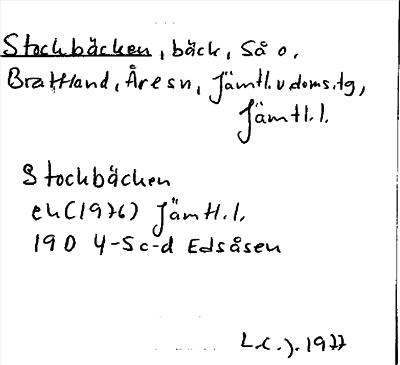 Stockbäcken, bäck, Så o.
Brattland, Åre sn, Jämtl. v doms.tg,
Jämtl. l.
Stockbäcken
ek (1976) Jämtl. l.
19D 4-5 c-d Edsåsen
L.C.J. 1977